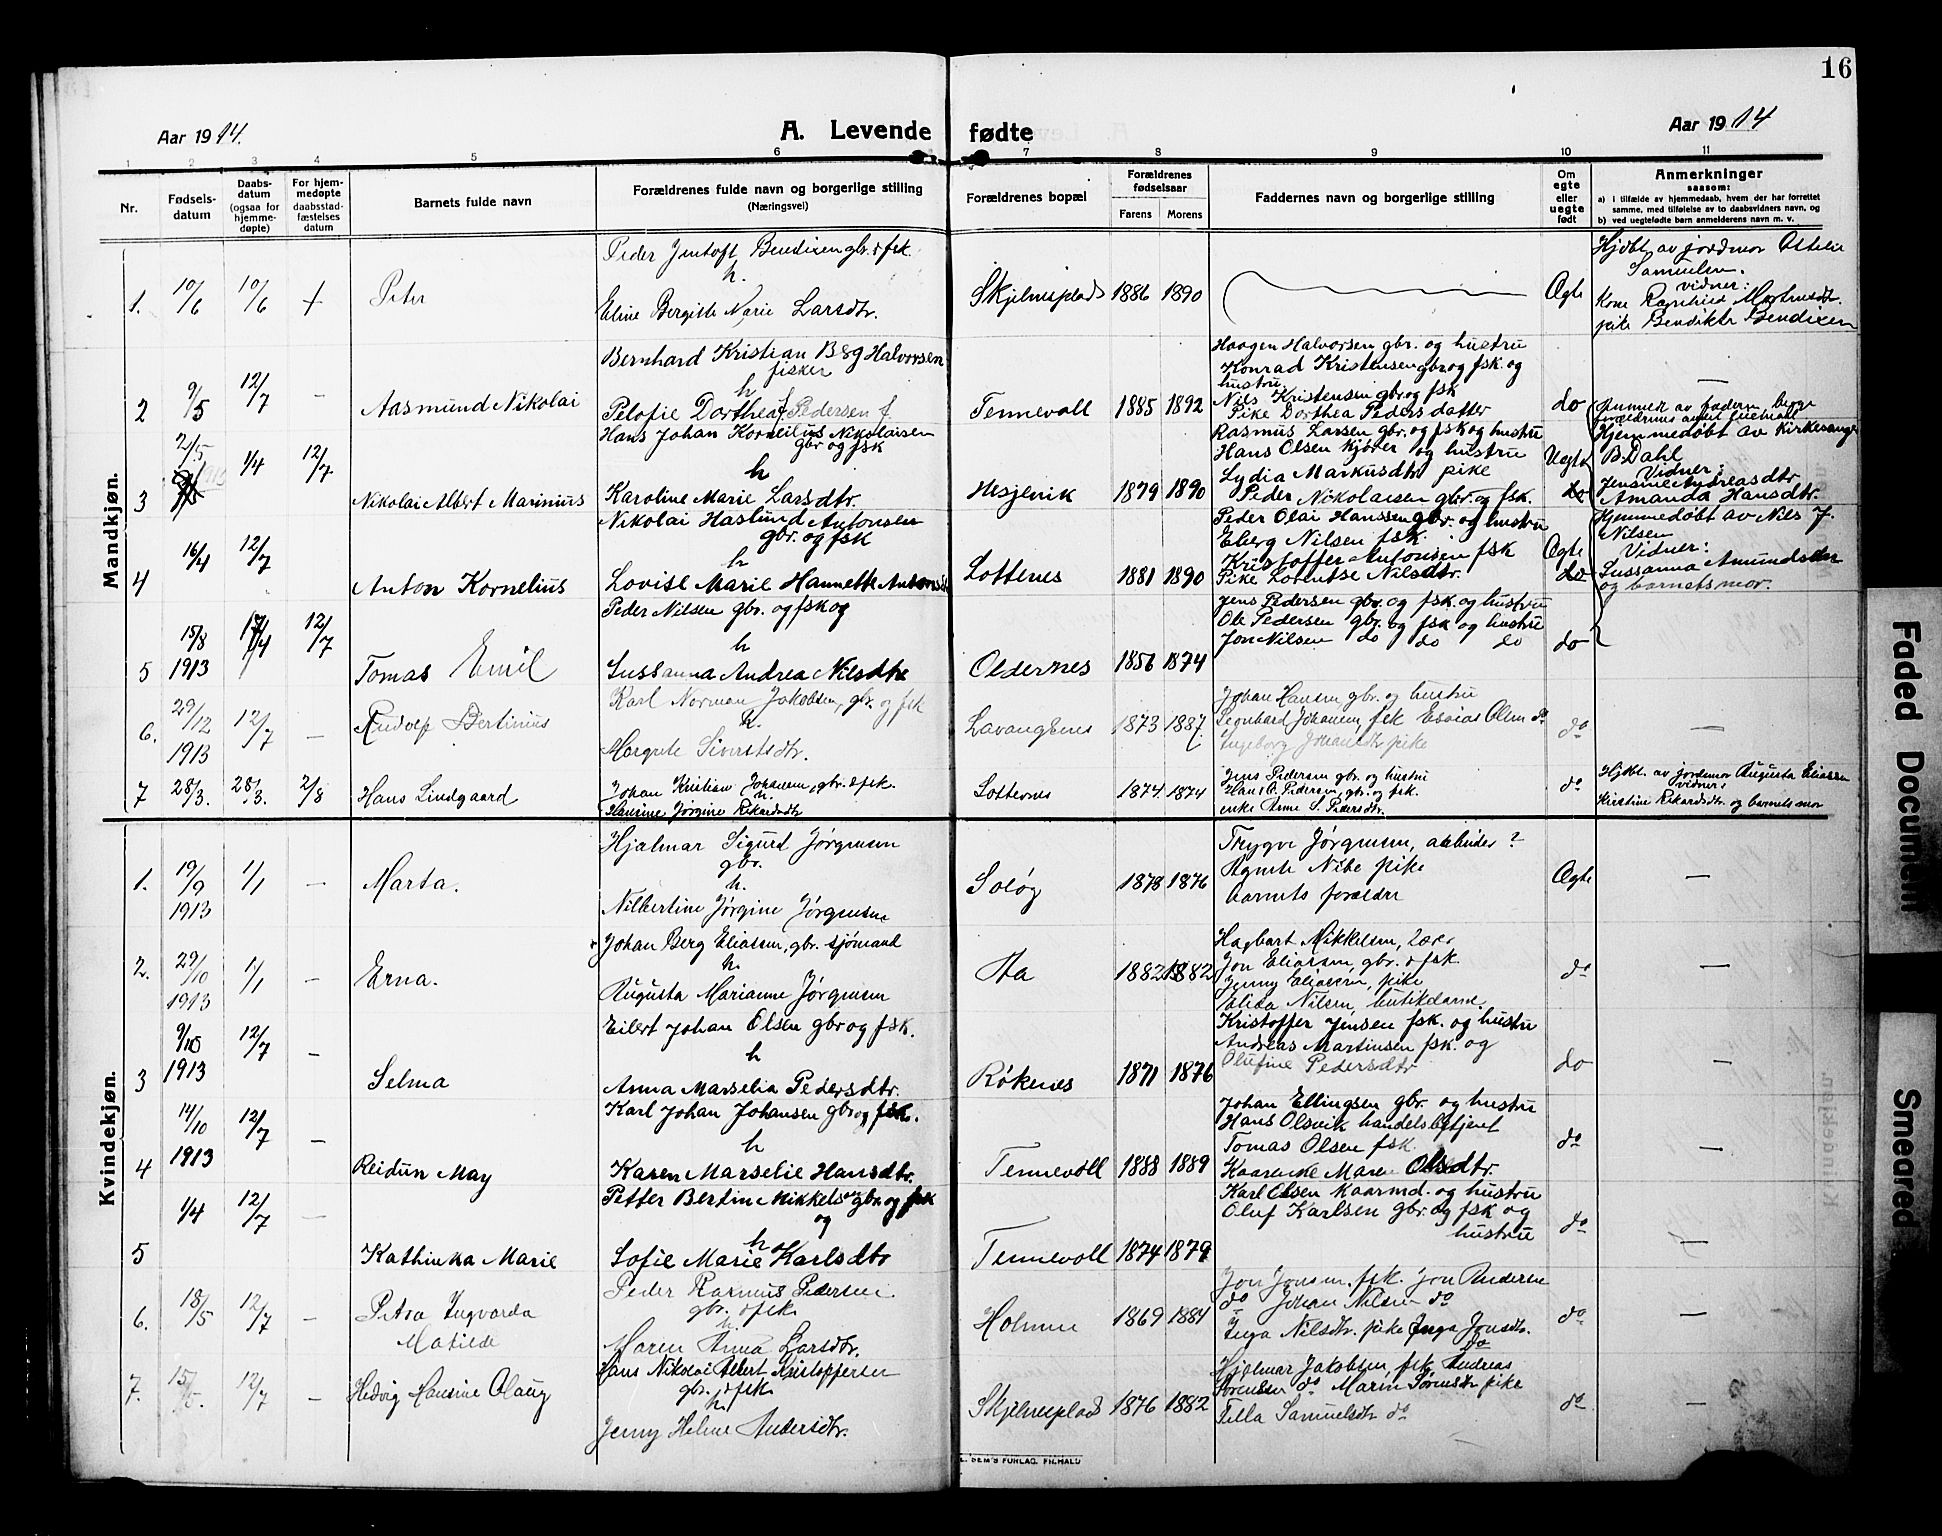 16
Aar 1914.
A. Levende fødte
Aar 1914
1 2 3 4 5 6 7 8 9 10 11
Nr.
Fødsels-
datum
Daabs-
datum
(ogsaa for
hjemme-
døpte)
For hjem-
medøpte
daabsstad-
fæstelses
datum
Barnets fulde navn
Forældrenes fulde navn og borgerlige stilling
(Næringsvei)
Forældrenes bopæl
Forældrenes
fødselsaar
Farens Morens
Faddernes navn og borgerlige stilling
Om
egte
eller
uegte
født
Anmerkninger
saasom:
a) i tilfælde av hjemmedaab, hvem der har forrettet
samme, med tilføielse av to daabsvidners navn, og
b) ved uegtefødte barn anmelderens navn m. v.
Mandkjøn.
1. 10/6 10/6 + Peter
Peder Jentoft Bendixen gbr. & fsk.
h.
Eline Bergitte Marie Larsdtr.
Skjelnesplads 1886 1890 Ægte
Hjdbt. av jordmor
vidner:
pike Bendikte Bendixen
2 9/5 12/7 – Aasmund Nikolai
Bernhard Kristian Berg Halvorsen
fisker
h
Pelofie Dorthea Pedersen f.
Tennevoll 1885 1892
Haagen Halvorsen gbr. og hustru
Konrad Kristensen gbr og fsk. og
hustru.
Nils Kristensen gbr og fsk
Pike Dorthea Pedersdatter
do —
3 2/5 1/4 12/7 Nikolai Albert Marinius
Hans Johan Kornelius Nikolaisen
gbr og fsk
h
Karoline Marie Larsdtr.
Hesjevik 1879 1890
Rasmus Larsen gbr. og fsk og hustru
Hans Olsen Kjörer og hustru
Lydia Markusdtr pike
Peder Nikolaisen gbr. og fsk.
Uegte
do
Hjemmedøbt av Kirkesanger
B. Dahl
Vidner:
Jensine Andreasdtr
Amanda Hansdtr.
4 16/4 12/7 Anton Kornelius
Nikolai Haslund Antonsen
gbr. og fsk
h
Lovise Marie Hannette
Lottenes 1881 1890
Peder Olai Hanssen gbr. og hustru
Eberg Nilsen fsk.
Kristoffer Antonsen fsk
Pike Lorentse Nilsdtr.
Ægte
do
Hjemmedøbt av Nils J.
Nilsen
Vidner:
Sussanna
og barnets mor.
5 15/8 1913 17/4 12/7 Tomas Emil
Peder Nilsen gbr. og fsk og
h
Sussanna Andrea Nilsdtr
Oldernes 1856 1874
Jens Pedersen gbr. og fsk. og hustru
Ole Pedersen gbr. og fsk og hustru
Jon Nilsen do do do
do
6. 29/12 1913 12/7 – Rudolf Bertinius
Karl Norman Jakobsen, gbr. og fsk
h.
Margrete Sivertsdtr.
Lavangsnes 1873 1887.
Johan Hansen gbr. og hustru
Leonhard Johansen, fsk Esaias Olsen do
Ingeborg Johansdtr pike
do —
7 28/3. 28/3. 2/8 Hans Lindgaard
Johan Kristian Johansen, gbr. & fsk.
h.
Hansine Jørgine Rikardsdtr
Lottenes 1874. 1874
Jens Pedersen gbr. og hustru
Hans P. Pedersen, gbr. og fsk.
enke Anne S. Pedersdtr.
do
Hjdbt. av jordemor Augusta Eliassen
vidner:
Kirstine Rikardsdtr. og barnets mor
Kvindekjøn.
1. 19/9 1913 1/1 – Marta.
Hjalmar Sigurd Jørgensen
gbr.
h.
Nilbertine Jørgine Jørgensen
Soløy 1878 1876
Trygve Jørgensen, arbeider ?
Agnete Nibe pike
barnets forældre
Ægte —
2. 29/10 1913 1/1 – Erna.
Johan Berg Eliassen, gbr. sjømand
h.
Augusta Marianne Jørgensen
Aa 1882 1882
Hagbart Mikkelsen, Lærer
Jon Eliassen, gbr. & fsk.
Jenny Eliassen, pike
Elida Nilsen, butikdame.
do —
3 9/10 1913 12/7 – Selma
Eilert Johan Olsen gbr og fsk.
h
Anna Marselia Pedersdtr.
Røkenes 1871 1876
Kristoffer Jensen fsk. og hustru
Andreas Martinsen fsk. og
Olufine Pedersdtr
do —
4 14/10 1913 12/7 – Reidun May
Karl Johan Johansen gbr og fsk.
h
Karen Marselie Hansdtr.
Tennevoll 1888 1889
Johan Ellingsen gbr. og hustru
Hans Olsvik handelsbetjent
Tomas Olsen fsk
Kaarenne Maren Olsdtr.
do —
5 1/4 12/7 – Kathinka Marie
Petter Bertin Mikkelsen gbr. og fsk
og
h
Sofie Marie Karlsdtr
Tennevoll 1874 1879
Karl Olsen Kaarmd. og hustru
Oluf Karlsen gbr. og fsk og
hustru
do —
6. 18/5 12/7 – Petra Ingvarda
Matilde
Peder Rasmus Pedersen.
gbr. & fsk
h
Maren Anna Larsdtr.
Holmen 1869 1884
Jon Jonsen, fsk. Jon Andersen
do Johan Nilsen do
Inga Nilsdtr. pike Inga Jonsdtr.
do
do —
7. 15/5. 12/7 – Hedvig Hansine Olaug
Hans Nikolai Albert Kristoffersen
gbr. & fsk
h.
Jenny Helene Andersdtr.
Skjelnesplads 1876 1882
Hjelmar Jakobsen, fsk Andreas
Sørensen do Marin Sørensdtr pike
Tella Samuelsdtr do
do —
Faded Document
Smeared